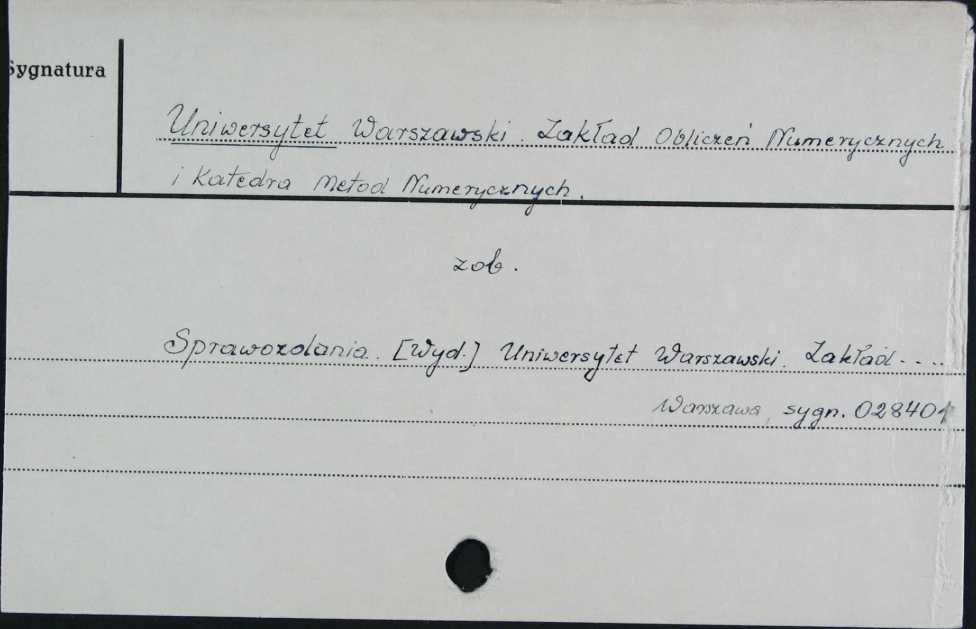 Sygnatura
Uniwersytet Warszawski. Zakład Obliczeń Numerycznych
i Katedra Metod Numerycznych.
zob.
Sprawozdania. [Wyd.] Uniwersytet Warszawski. Zakład....
Warszawa, sygn. 028401